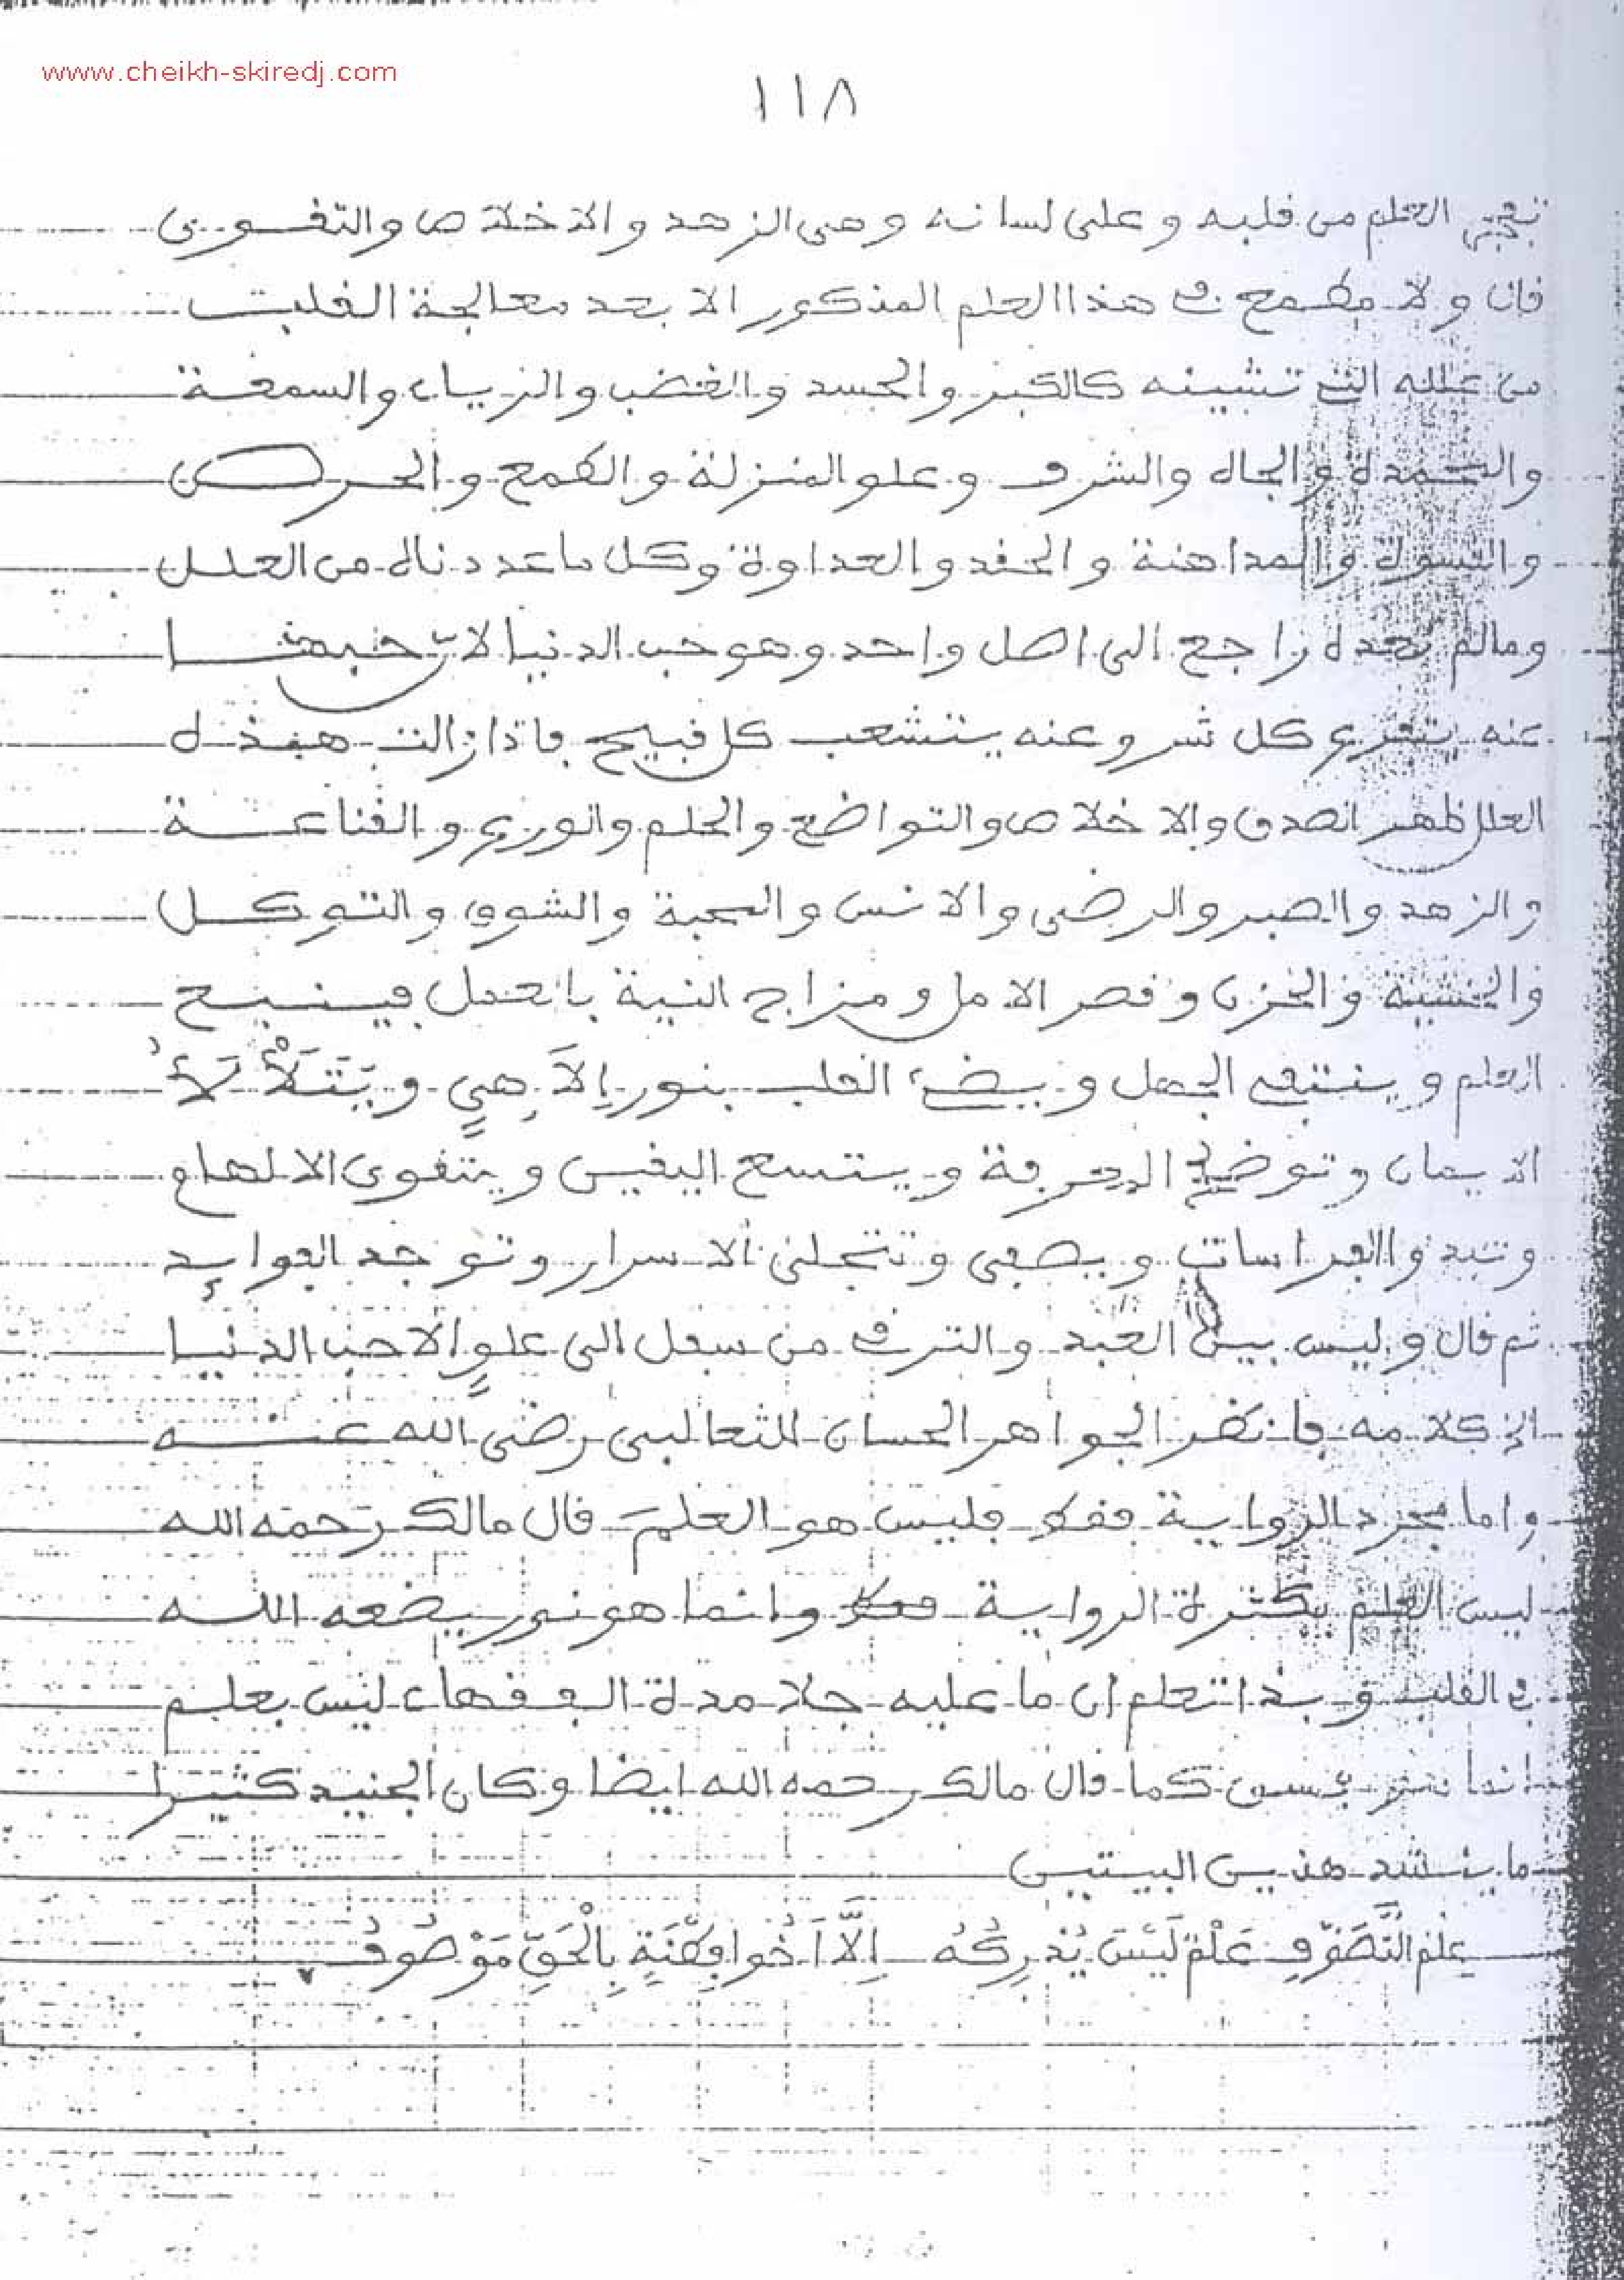 www.cheikh-skiredj.com
١١٨
العلم من قلبه وعلى لسانه وهى الزهد والاخلاص والتقوى
قال ولا مطمع في هذا العلم المذكور الا بعد معالجة القلب
من علله التي تشينه كالكبر والحسد والغضب والرياء والسمعة
والمحمدة والجاه والشرف وعلو المنزلة والطمع والحرص
والقسوة والمداهنة والحقد والعداوة وكل ما عددناه من العلل
وما لم نعده راجع الى اصل واحد وهو حب الدنيا لان حبها
عنه يتفرع كل شر وعنه يتشعب كل قبيح فاذا زالت هذه
العلل ظهر الصدق والاخلاص والتواضع والحلم والورع والقناعة
والزهد والصبر والرضى والانس والمحبة والشوق والتوكل
والخشية والحزن وقصر الامل ومزاج النية بالعمل فينبع
العلم وينتفى الجهل ويضيء القلب بنور إلاَهِيٍ ويَتَلَأْلَأُ
الايمان وتوضح المعرفة ويتسع اليقين ويتقوى الالهام
وتبدو الفراسات ويصفى وتتجلى الاسرار وتوجد الفوايد
ثم قال وليس بين العبد والترقي من سفل الى علوٍ الا حب الدنيا
الخ كلامه فانظر الجواهر الحسان للثعالبى رضى الله عنه
واما مجرد الرواية فقط فليس هو العلم قال مالك رحمه الله
ليس العلم بكثرة الرواية فقط وانما هو نور يضعه الله
في القلب وبذا تعلم ان ما عليه جلامدة الفقهاء ليس بعلم
انما كما قال مالك رحمه الله ايضا وكان الجنيد كثيرا
ما ينشد هذين البيتين
عِلْمُ التَّصَوُّفِ عِلْمٌ لَيْسَ يُدْرِكُهُ إِلَّا أَخُوا فِطْنَةٍ بِالْحَقِّ مَوْصُوفُ